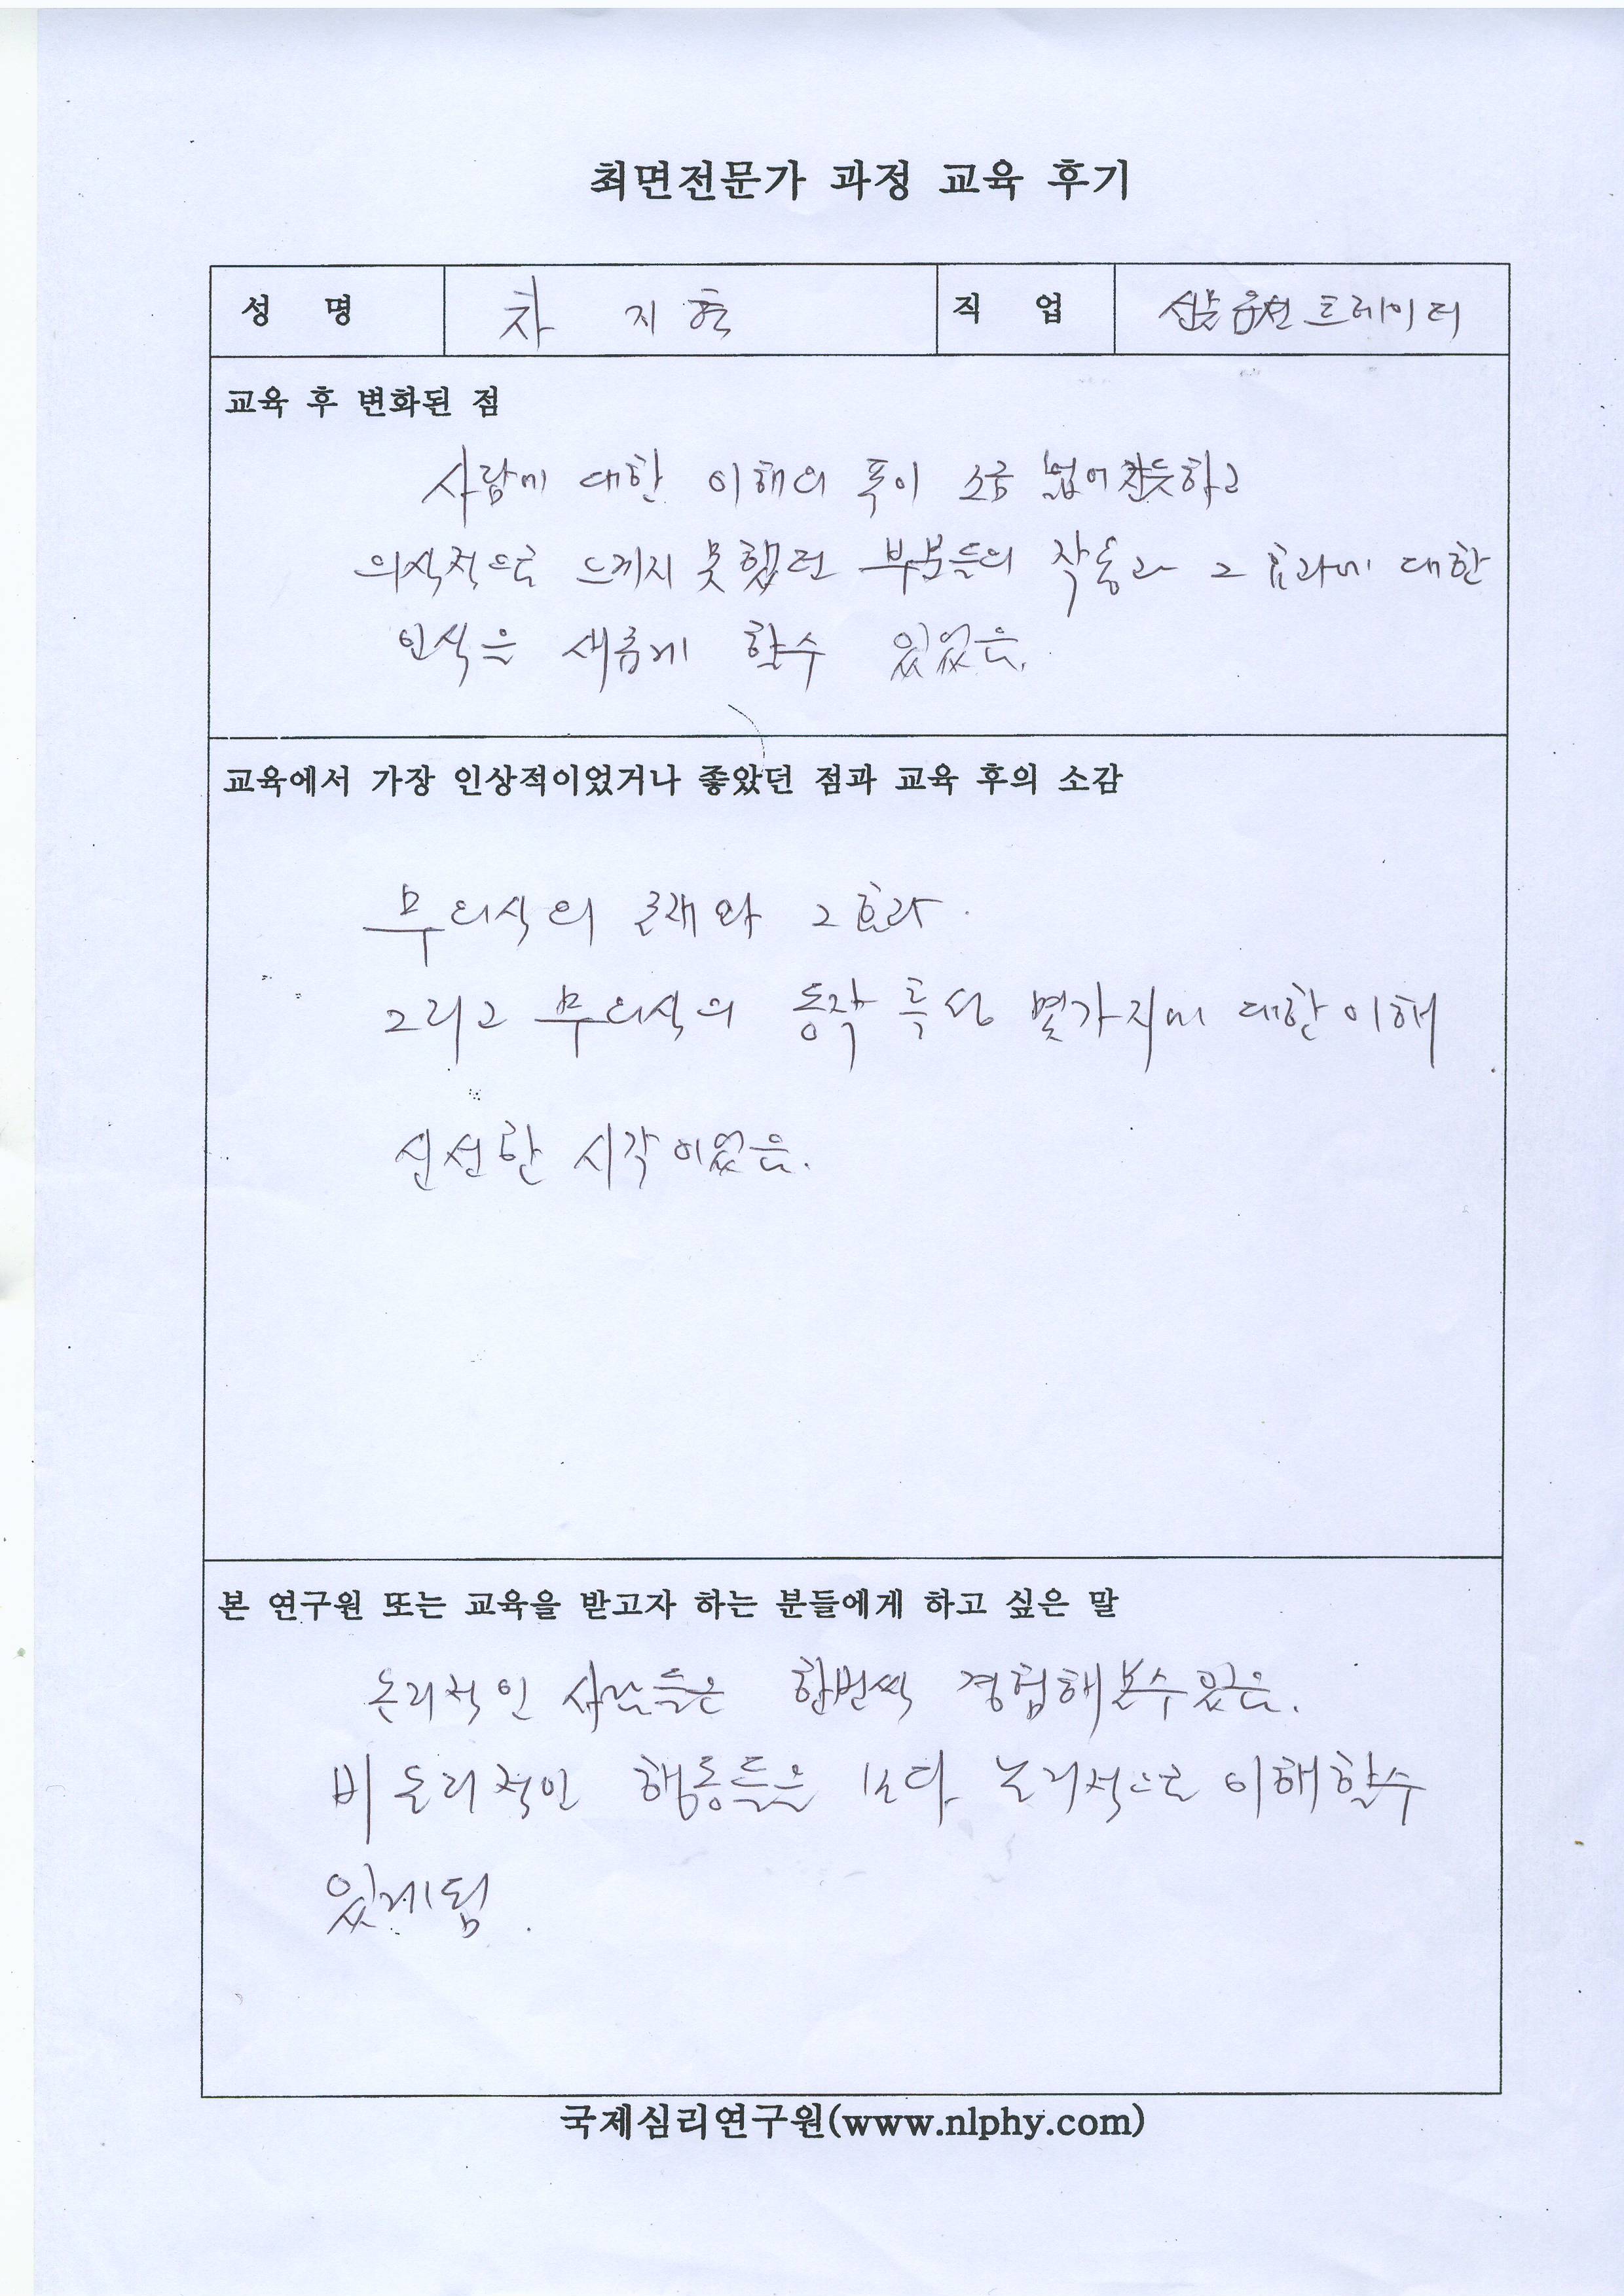 최면전문가 과정 교육 후기
성 명 차 지 직 업 선물옵션 트레이더
교육 후 변화된 점
사람에 대한 이해의 폭이 조금 넓어진듯하고
의식적으로 느끼지 못했던 부분들의 작동과 그 효과에 대한
인식을 새롭게 할수 있었음.
교육에서 가장 인상적이었거나 좋았던 점과 교육 후의 소감
무의식의 존재와 그 효과.
그리고 무의식의 동작 특성 몇가지에 대한 이해
신선한 시각이었음.
본 연구원 또는 교육을 받고자 하는 분들에게 하고 싶은 말
논리적인 사람들은 한번씩 경험해 볼수 있음.
비 논리적인 행동들을 보다 논리적으로 이해할수
있게됨.
국제심리연구원(www.nlphy.com)